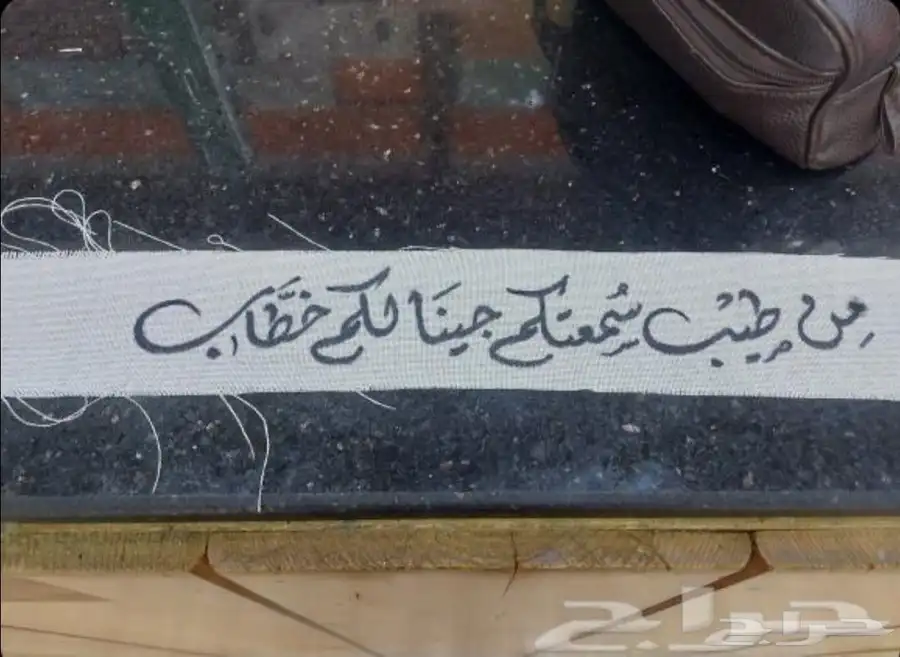 مِن طِيّب سُمعتكم جينَا لكم خطَّاب
حراج
حراج